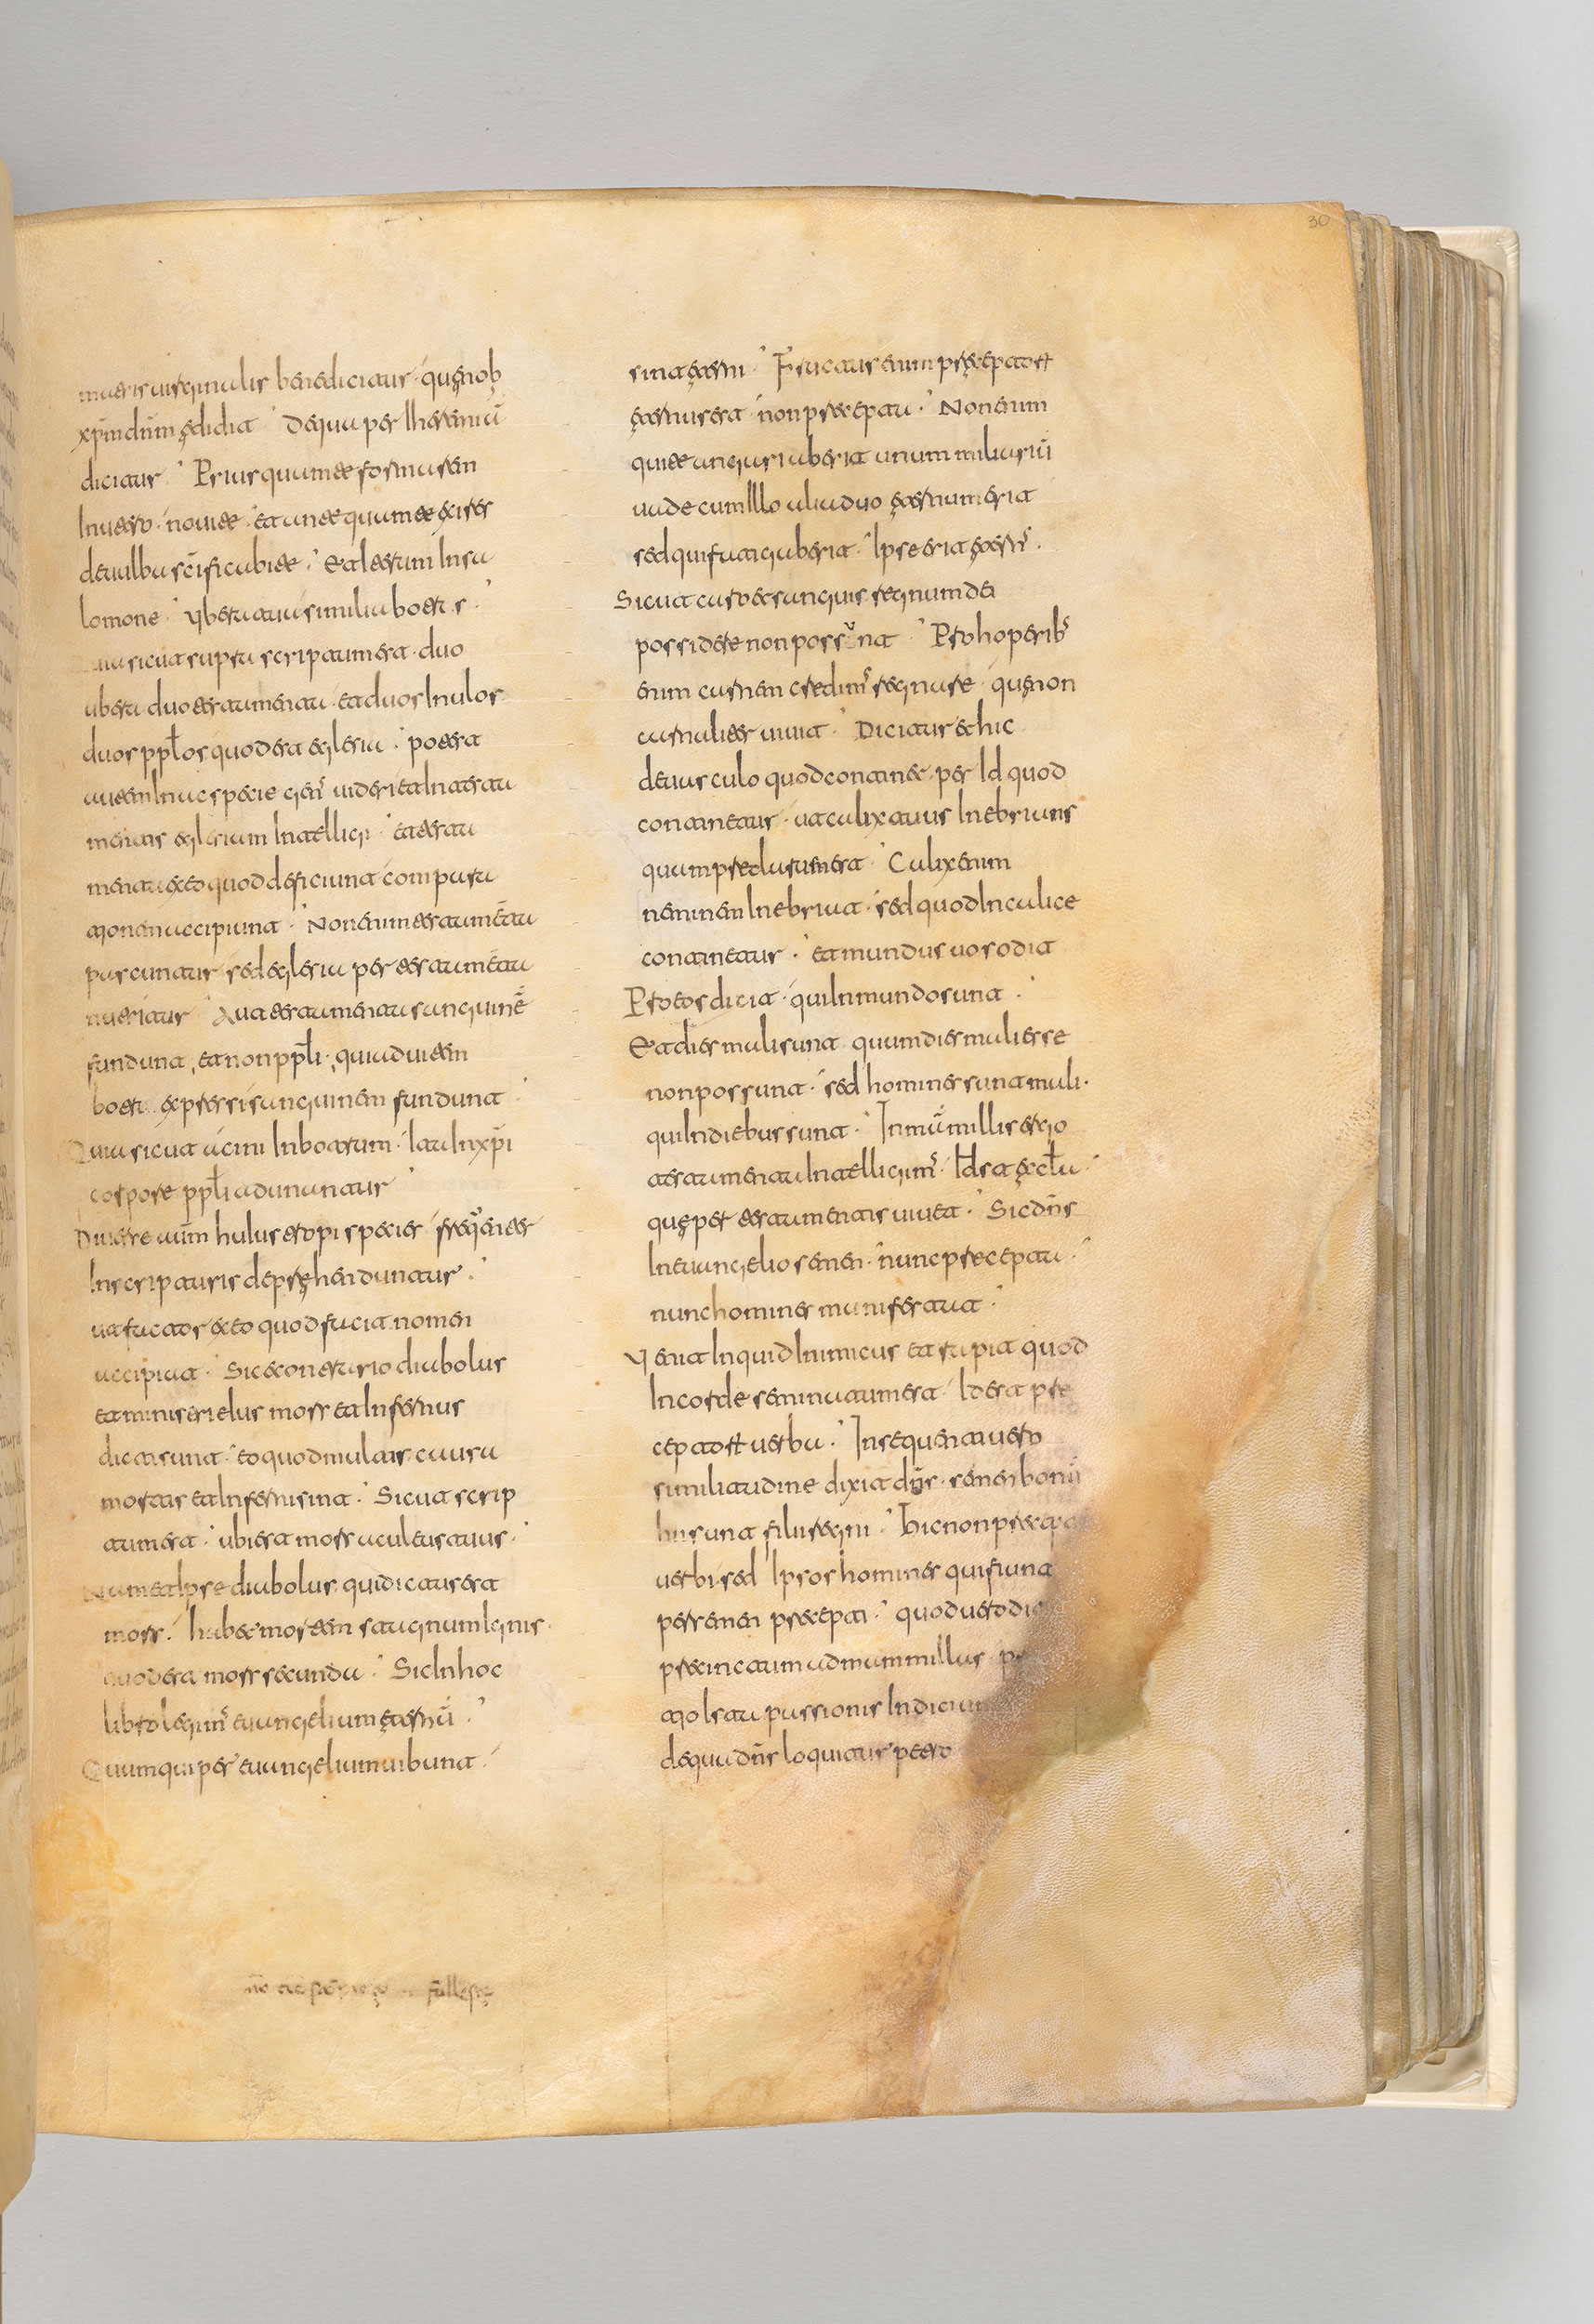 matris uirginalis benedicitur · que nob
xpm dnm edidit · De qua per Iheremia
dicitur · Priusquam te formarem
In utero · noui te · et antequam te exires
de ualba scificabi te · Et alterum In sa
lomone · Ubera tua similia botris ·
Quia sicut supra scriptum est · duo
ubera duo testamenta · et duos Inulos
duos pplos quod est eglesia · potest
autem In ac specie gen uideri et In testa
mentis eglesiam Intelligi · et testa
menta ex eo quod deficiunt compara
tionem accipiunt · Non enim testamēta
pascuntur sed eglesia per testamēta
nutritur · Aut testamenta sanguinē
fundunt, et non ppli, quia uitem
botri expressi sanguinem fundunt ·
Quia sicut acini In botrum · Ita In xpi
corpore ppli adunantur ·
autm huius tropi species freqenter
In scripturis deprehenduntur ·
ut factor ex eo quod faciat nomen
accipiat · Sic e contrario diabolus
et ministri eius mors et Infernus
dicti sunt · eo quod multis causa
mortis et Inferni sint · Sicut scrip
tum est · ubi est mors aculeus tuus ·
Nam et Ipse diabolus qui dictus est
mors · habet mortem stagnum ignis ·
quod est mors secunda · Sic In hoc
libro legim euangelium eternū ·
Quumqui per euangelium uibunt ·
sint eterni · Fructus enim preceptorum
eternus est · non precepta · Non enim
qui te angariaberit unum miliariū
uade cum Illo alia duo eternum erit
sed qui fuangaberit · Ipse erit etern ·
Sicut caro et sanguis regnum dei
possidere non possunt · Pro hoperib
enim carnem credim regnare · que non
carnaliter uiuit · Dicitur et hic
de uasculo quod continet · per Id quod
continetur · ut calix tuus Inebrians
quam preclarum est · Calix enim
neminem Inebriat · sed quod In calice
continetur · et mundus uos odit
Pro eos dicit · qui In mundo sunt ·
Et dies mali sunt quum dies mali esse
non possunt · sed homines sunt mali ·
qui In diebus sunt · In mamillis ergo
testamenta Intelligim · Id est eccla ·
que per testamentis uiuet · Sic dns
In euangelio semen · nunc precepta ·
nunc homines manifestat ·
Uenit Inquid Inimicus et rapit quod
In corde seminatum est · Id est pre
ceptorum uerba · In sequenti uero
similitudine dixit dns · semen bonū
hii sunt filii regni · Hic non precepta
uerbi sed Ipsos homines qui fiunt
per semen precepti · quod uero
precinctum ad mammillas
passionis Indicium
de qua dns loquitur petro
30